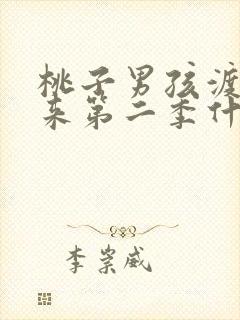 桃子男孩渡
来第二季什
李崇威